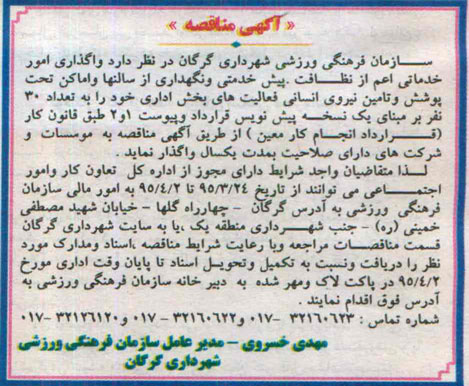 « آگهی مناقصه »
سازمان فرهنگی ورزشی شهرداری گرگان در نظر دارد واگذاری امور
خدماتی اعم از نظافت .پیش خدمتی ونگهداری از سالنها واماکن تحت
پوشش وتامین نیروی انسانی فعالیت های بخش اداری خود را به تعداد ۳۰
نفر بر مبنای یک نسخه پیش نویس قرارداد وپیوست ۱و۲ طبق قانون کار
(قرارداد انجام کار معین ) از طریق آگهی مناقصه به موسسات و
شرکت های دارای صلاحیت بمدت یکسال واگذار نماید .
لذا متقاضیان واجد شرایط دارای مجوز از اداره کل تعاون کار وامور
اجتماعی می توانند از تاریخ ۹۵/۳/۲۴ تا ۹۵/۴/۲ به امور مالی سازمان
فرهنگی ورزشی به آدرس گرگان – چهارراه گلها – خیابان شهید مصطفی
خمینی (ره) – جنب شهرداری منطقه یک ،یا به سایت شهرداری گرگان
قسمت مناقصات مراجعه وبا رعایت شرایط مناقصه ،اسناد ومدارک مورد
نظر را دریافت ونسبت به تکمیل وتحویل اسناد تا پایان وقت اداری مورخ
۹۵/۴/۲ در پاکت لاک ومهر شده به دبیر خانه سازمان فرهنگی ورزشی به
آدرس فوق اقدام نمایند .
شماره تماس : ۳۲۱۶۰۶۲۳ -۰۱۷ و ۳۲۱۶۰۶۲۲ – ۰۱۷ و ۳۲۱۲۶۱۲۰-۰۱۷
مهدی خسروی – مدیر عامل سازمان فرهنگی ورزشی
شهرداری گرگان